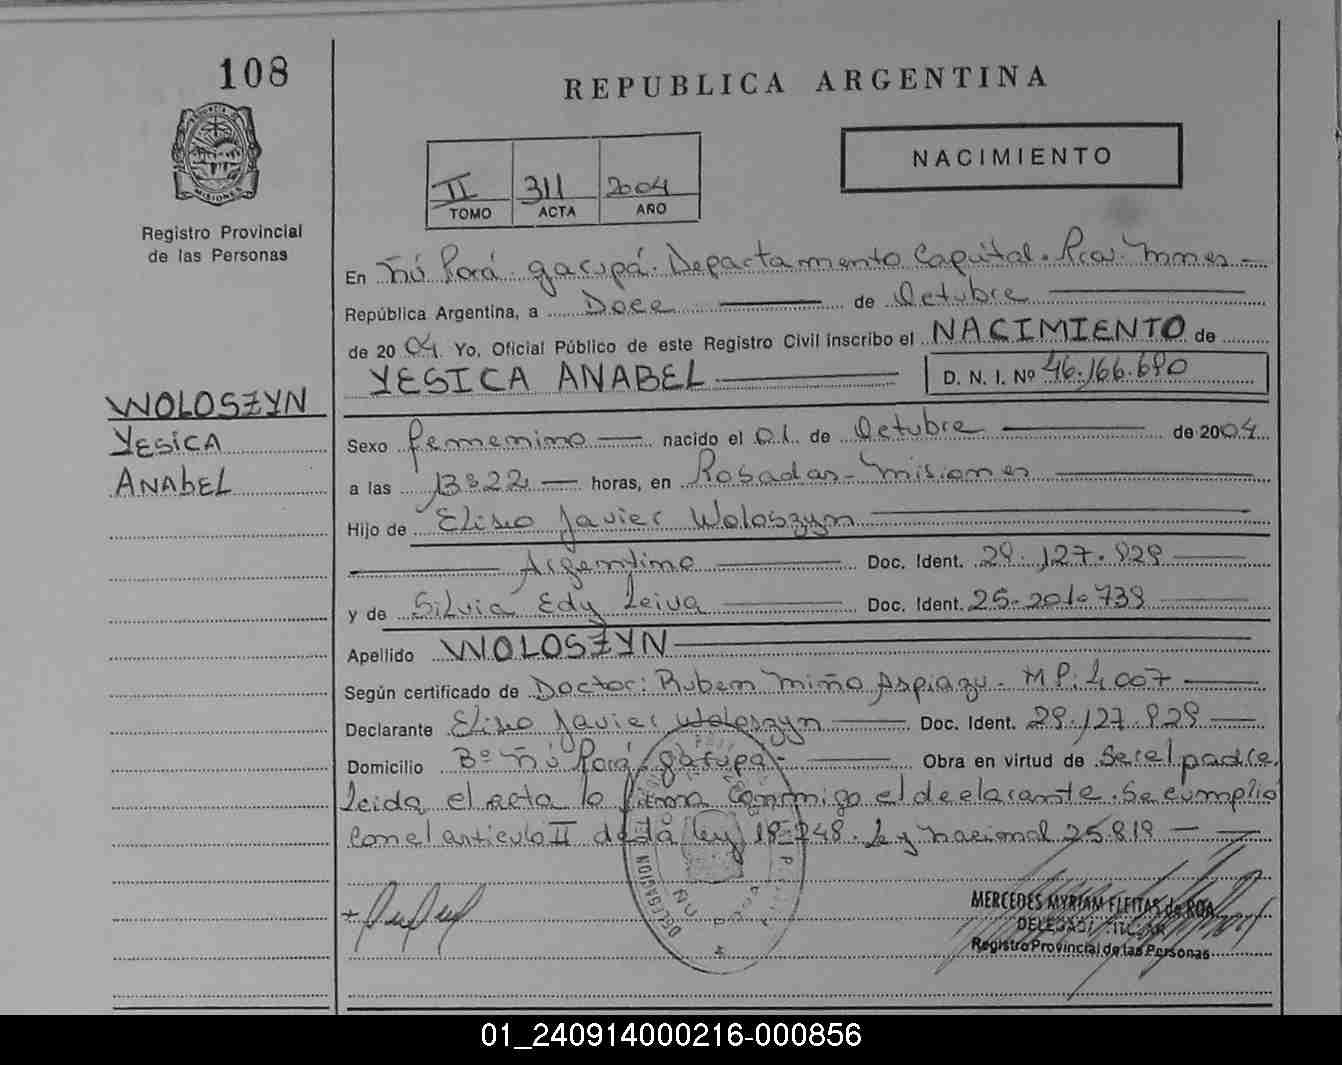 108
REPUBLICA ARGENTINA
NACIMIENTO
II 311 2004
TOMO ACTA AÑO
Registro Provincial
de las Personas
MISIONES
En Ñú Porá. garupá. Departamento Capital. Prov. Mnes
República Argentina, a Doce de Octubre
de 2004 Yo, Oficial Público de este Registro Civil inscribo el NACIMIENTO de
YESICA ANABEL D. N. I. Nº 46.166.690
WOLOSZYN
YESICA
ANAbEL
Sexo femenino nacido el 01 de Octubre de 2004
a las 13:22 horas, en Posadas - Misiones
Hijo de Eliseo Javier Woloszyn
Argentino Doc. Ident. 29.127.929
y de Silvia Edy Leiva Doc. Ident. 25.201.739
Apellido WOLOSZYN
Según certificado de Doctor: Ruben Miño Aspiazu. M P. 4007
Declarante Eliseo Javier Woloszyn Doc. Ident. 29.127.929
Domicilio Bº Ñú Porá garupá Obra en virtud de Ser el padre.
Leida el acta lo firma conmigo el declarante. Se cumplio
con el articulo II de la ley 18.248. Ley nacional 25.819
DELEGACION
MERCEDES MYRIAM FLEITAS de ROA
DELEGADA TITULAR
Registro Provincial de las Personas
01_240914000216-000856